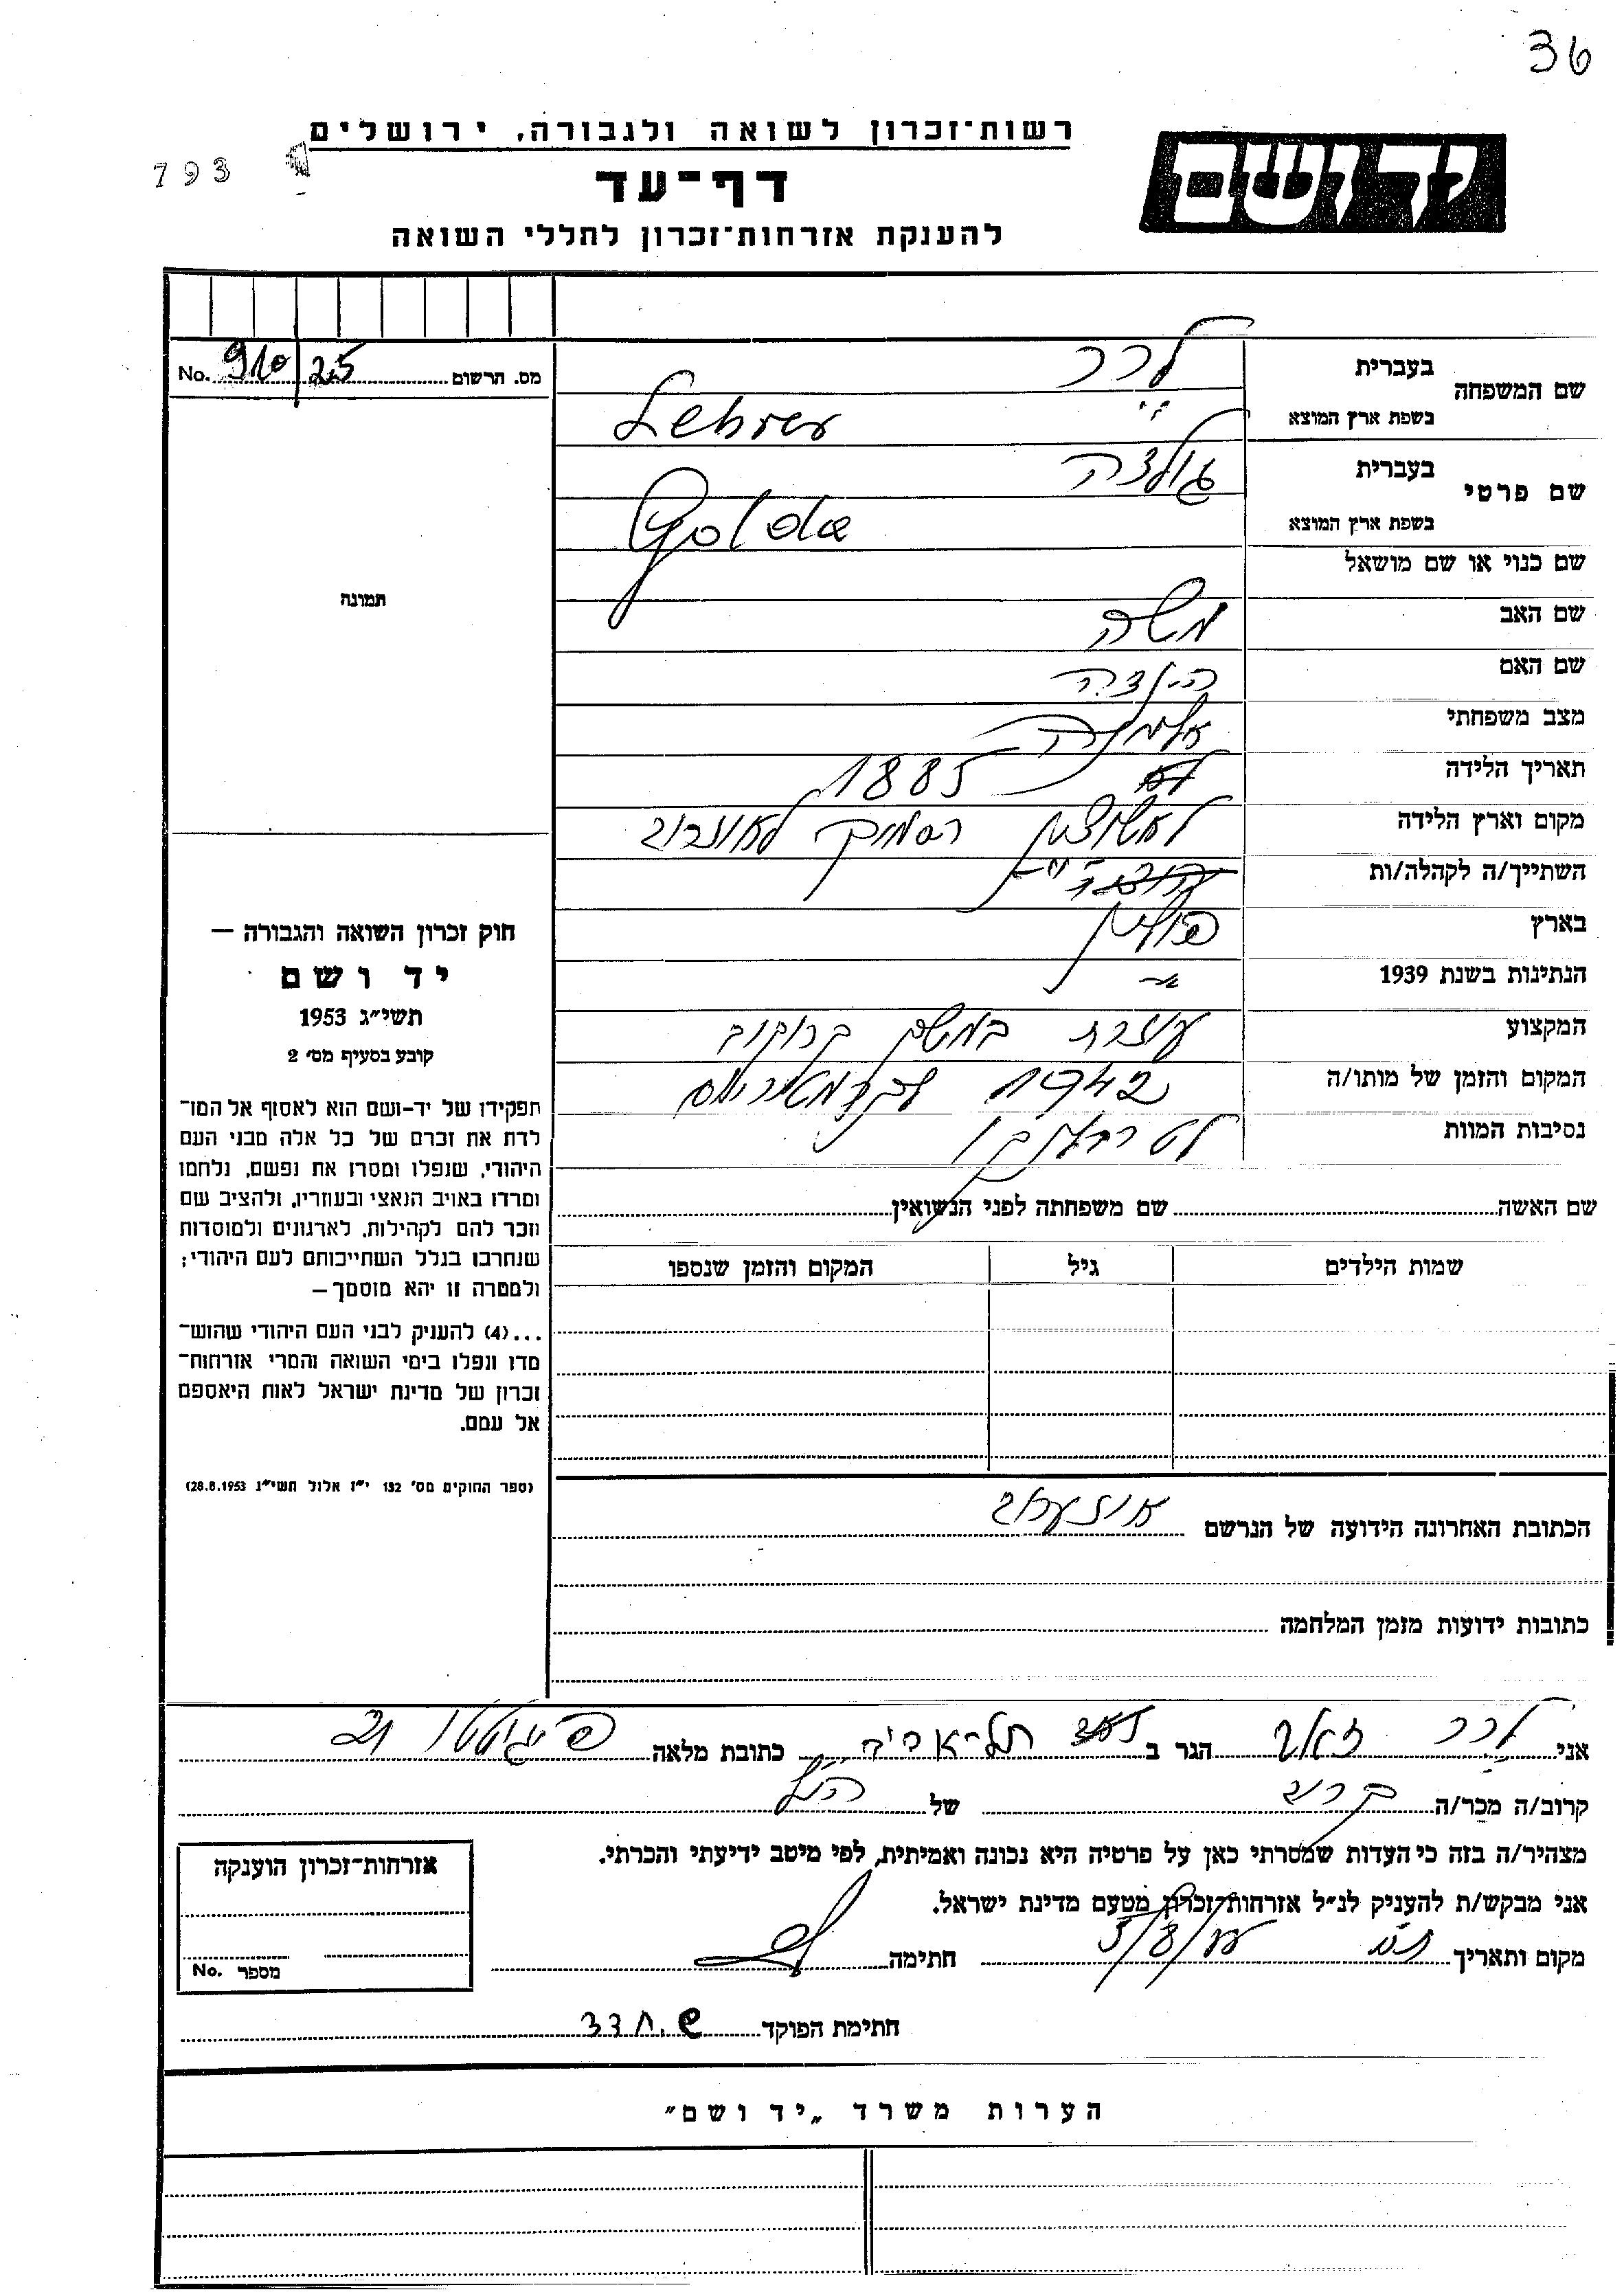 36
רשות־זכרון לשואה ולגבורה, ירושלים
793
ידושם
דף־עד
להענקת אזרחות־זכרון לחללי השואה
מס. תרשום 910/25 No.
שם המשפחה
בעברית לרר
בשפת ארץ המוצא Lehrer
שם פרטי
בעברית גולדה
בשפת ארץ המוצא Golda
שם כנוי או שם מושאל
תמונה
שם האב משה
שם האם הילדה
מצב משפחתי אלמנה
תאריך הלידה 1885
מקום וארץ הלידה
השתייך/ה לקהלה/ות
בארץ פולין
הנתינות בשנת 1939
המקצוע עוזרת במשק
המקום והזמן של מותו/ה 1942
נסיבות המוות
שם האשה שם משפחתה לפני הנשואין
שמות הילדים גיל המקום והזמן שנספו
חוק זכרון השואה והגבורה —
יד ושם
תשי״ג 1953
קובע בסעיף מס׳ 2
תפקידו של יד־ושם הוא לאסוף אל המו־
לדת את זכרם של כל אלה מבני העם
היהודי, שנפלו ומסרו את נפשם, נלחמו
ומרדו באויב הנאצי ובעוזריו, ולהציב שם
וזכר להם לקהילות, לארגונים ולמוסדות
שנחרבו בגלל השתייכותם לעם היהודי;
ולמטרה זו יהא מוסמך —
...(4) להעניק לבני העם היהודי שהוש־
מדו ונפלו בימי השואה והמרי אזרחות־
זכרון של מדינת ישראל לאות היאספם
אל עמם.
(ספר החוקים מס׳ 132 י״ז אלול תשי״ג 28.8.1953)
הכתובת האחרונה הידועה של הנרשם
כתובות ידועות מזמן המלחמה
אני לרר זאב הגר ב תל־אביב כתובת מלאה
קרוב/ה מכר/ה קרוב של הנ״ל
מצהיר/ה בזה כי העדות שמסרתי כאן על פרטיה היא נכונה ואמיתית, לפי מיטב ידיעתי והכרתי.
אני מבקש/ת להעניק לנ״ל אזרחות־זכרון מטעם מדינת ישראל.
מקום ותאריך חתימה
אזרחות־זכרון הוענקה
מספר No.
חתימת הפוקד
הערות משרד „יד ושם״